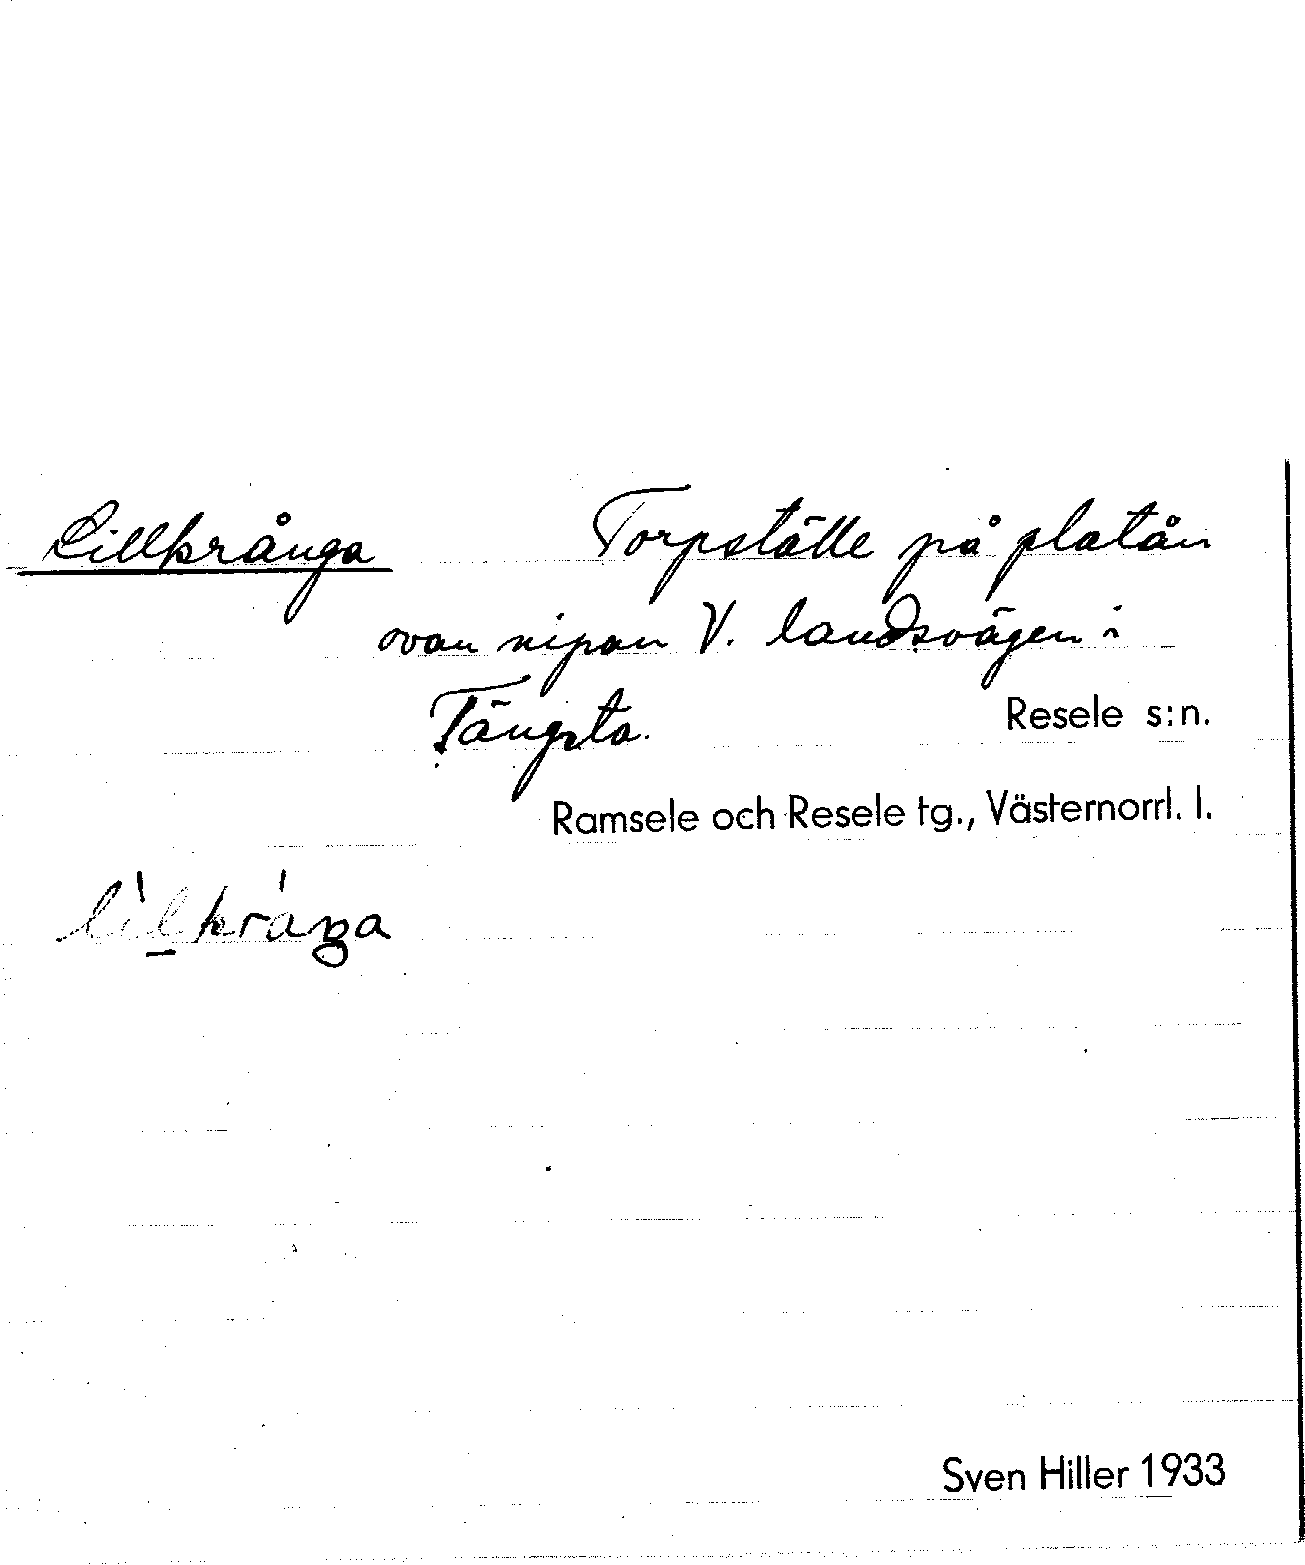 Lillkrånga Torpställe på platån
ovan nipan V. landsvägen i
Tängsta. Resele s:n.
Ramsele och Resele tg., Västernorrl. l.
Sven Hiller 1933